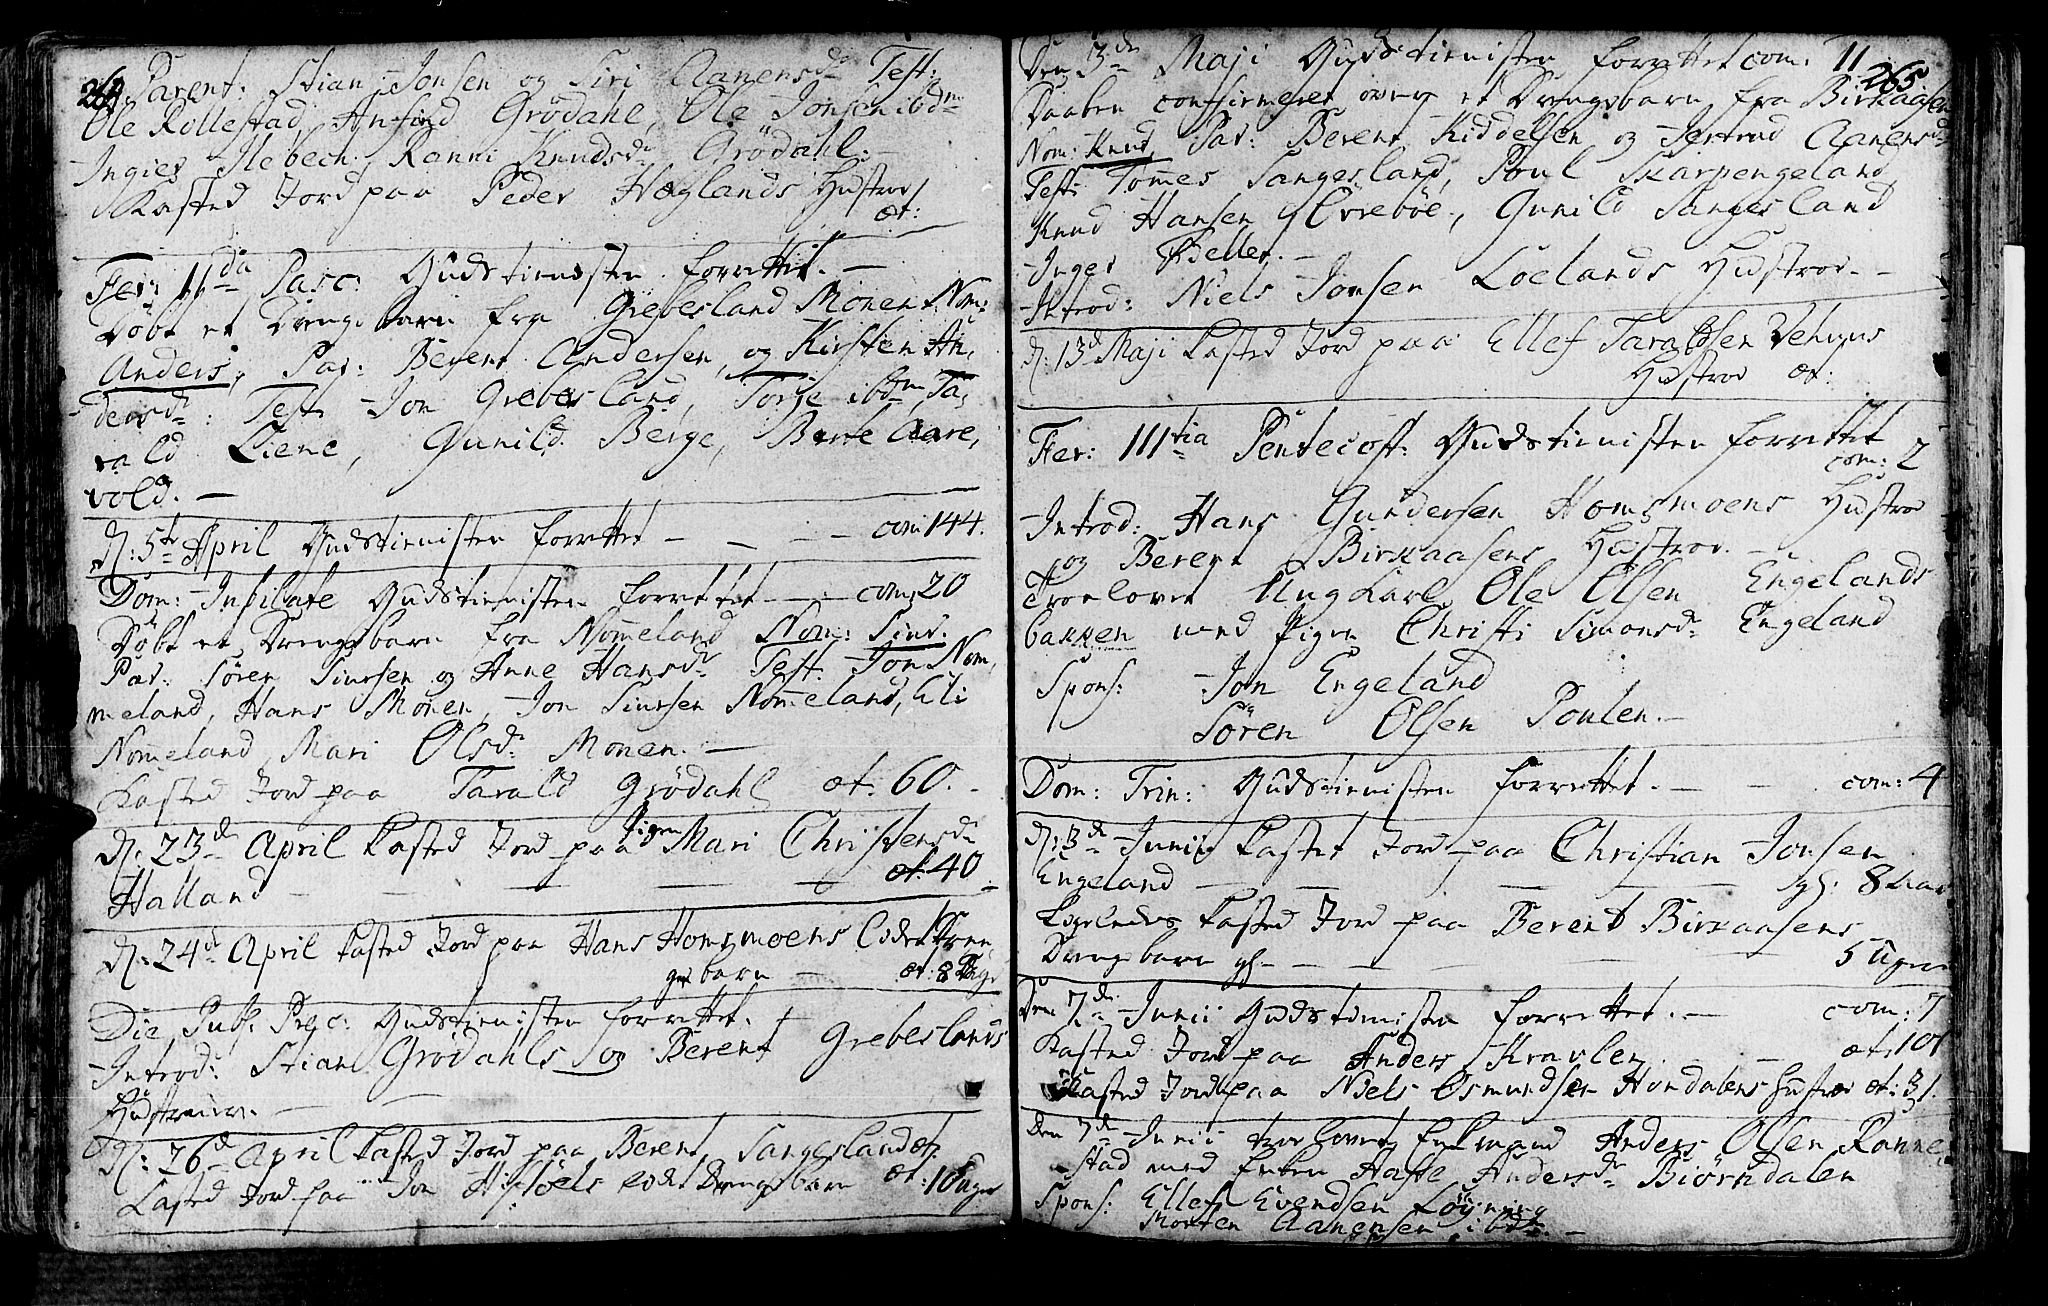 264 Parent: Stian Jonsen og Siri Aanensdr Test:
Ole Röllestad, Anfind Grödahl, Ole Jonsen ibdm
Ingier Ilebech, Ranni Knudsdr Grödahl. —
Kasted Jord paa Peder Hæglands Hustroe
æt:
Fer: 11da Pasc: Gudstienisten forrettet. —
Döbt et Drengebarn fra Grebesland Monen Nom:
Anders, Par: Berent Andersen, og Kirsten An,
dersdr: Test: Jon Grebesland, Torge ibdm, Ta,
rald Liene, Gunild Berge, Berte Aare,
vold. —
d: 5te April Gudstienisten forrettet — — — com 144.
Dom: Jubilate Gudstienisten forrettet — — com: 20
Döbt et Drengebarn fra Nommeland Nom: Siur.
Par: Sören Siursen og Anne Hansdr Test: Jon Nom,
meland, Hans Monen, Jon Siursen Nommeland, Eli
Nommeland, Mari Olsdr Monen. —
Kasted Jord paa Tarald Grödahl æt: 60. —
d: 23de April kasted Jord paa Pigen Mari Christensdr
Halland — — — — — æt. 40
d: 24de April kasted Jord paa Hans Homsmoens lidet Dren
gebarn — æt: 8 Dage
Die Publ: Prec: Gudstienisten forrettet. —
Introd: Stian Grödahls og Berent Grebeslands
Hustruer. —
d: 26de April kasted Jord paa Berent Sangesland æt:
Kasted Jord paa Jon Höls lidet Drengebarn æt: 10 Uger
Den 3de Maji Gudstienisten forrettet com: 11
265
Daaben confirmeret over et Drengebarn fra Birkaasen
Nom: Knud, Par: Berent Kiddelsen og Jertrud Aanensdr
Test: Tommes Sangesland, Poul Skarpengeland,
Knud Hansen Övreböe, Gunild Sangesland
Inger Kield.
Introd: Niels Jonsen Loelands Hustroe. —
d: 13de Maji kasted Jord paa Ellef Taraldsen Vehuus
Hustroe æt:
Fer: 111tia Pentecost: Gudstienisten forrettet
com: 2
Introd: Hans Gundersen Homsmoens Hustroe
og Berent Birkaasens Hustroe. —
Troelovet Ungkarl Ole Olsen Engelands
bakken med Pigen Christi Simonsdr Engeland
Spons: Jon Engeland
Sören Olsen Poulen. —
Dom: Trin: Gudstienisten forrettet. — — com: 4
d: 3de Junii kastet Jord paa Christian Jonsen
Engeland — — — — — gl: 8 Aar
Ligeledes kasted Jord paa Berent Birkaasens
Drengebarn gl — — — — — 5 Uger
Den 7de Junii Gudstienisten forrettet. — com: 7
Kasted Jord paa Anders Kravlen — — æt: 101
Kasted Jord paa Niels Osmundsen Hondalens Hustroe æt: 31.
Den 7de Junii troelovet Enkemand Anders Olsen Ranne,
stad med Enken Aaste Andersdr Biörndalen
Spons: Ellef Evendsen Löyning
Morten Aanensen ibdm. —